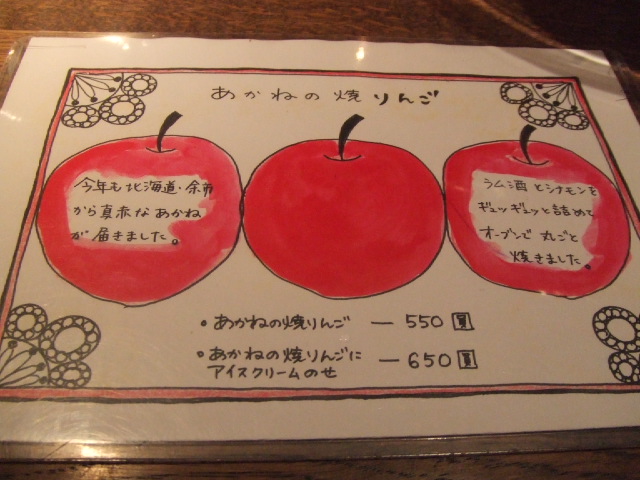 あかねの焼りんご
今年も北海道・余市
から真赤なあかね
が届きました。
ラム酒とシナモンを
ギュッギュッと詰めて
オーブンで丸ごと
焼きました。
・あかねの焼りんご — 550圓
・あかねの焼りんごに
アイスクリームのせ — 650圓